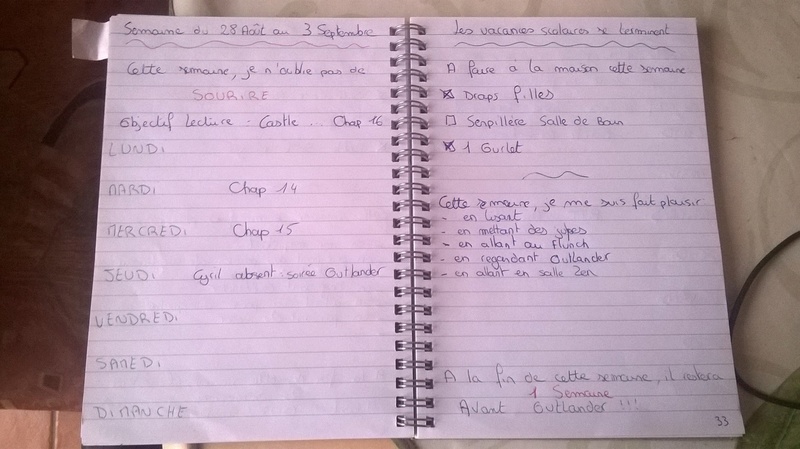 Semaine du 28 Août au 3 Septembre
Cette semaine, je n'oublie pas de
SOURIRE
Objectif Lecture : Castle ... Chap 16
LUNDI
MARDI Chap 14
MERCREDI Chap 15
JEUDI Cyril absent : soirée Outlander
VENDREDI
SAMEDI
DIMANCHE
Les vacances scolaires se terminent
A faire à la maison cette semaine
Draps filles
Serpillère Salle de Bain
1
Cette semaine, je me suis fait plaisir
- en lisant
- en mettant des jupes
- en allant au Flunch
- en regardant Outlander
- en allant en salle Zen
A la fin de cette semaine, il restera
1 Semaine
Avant Outlander !!!
33